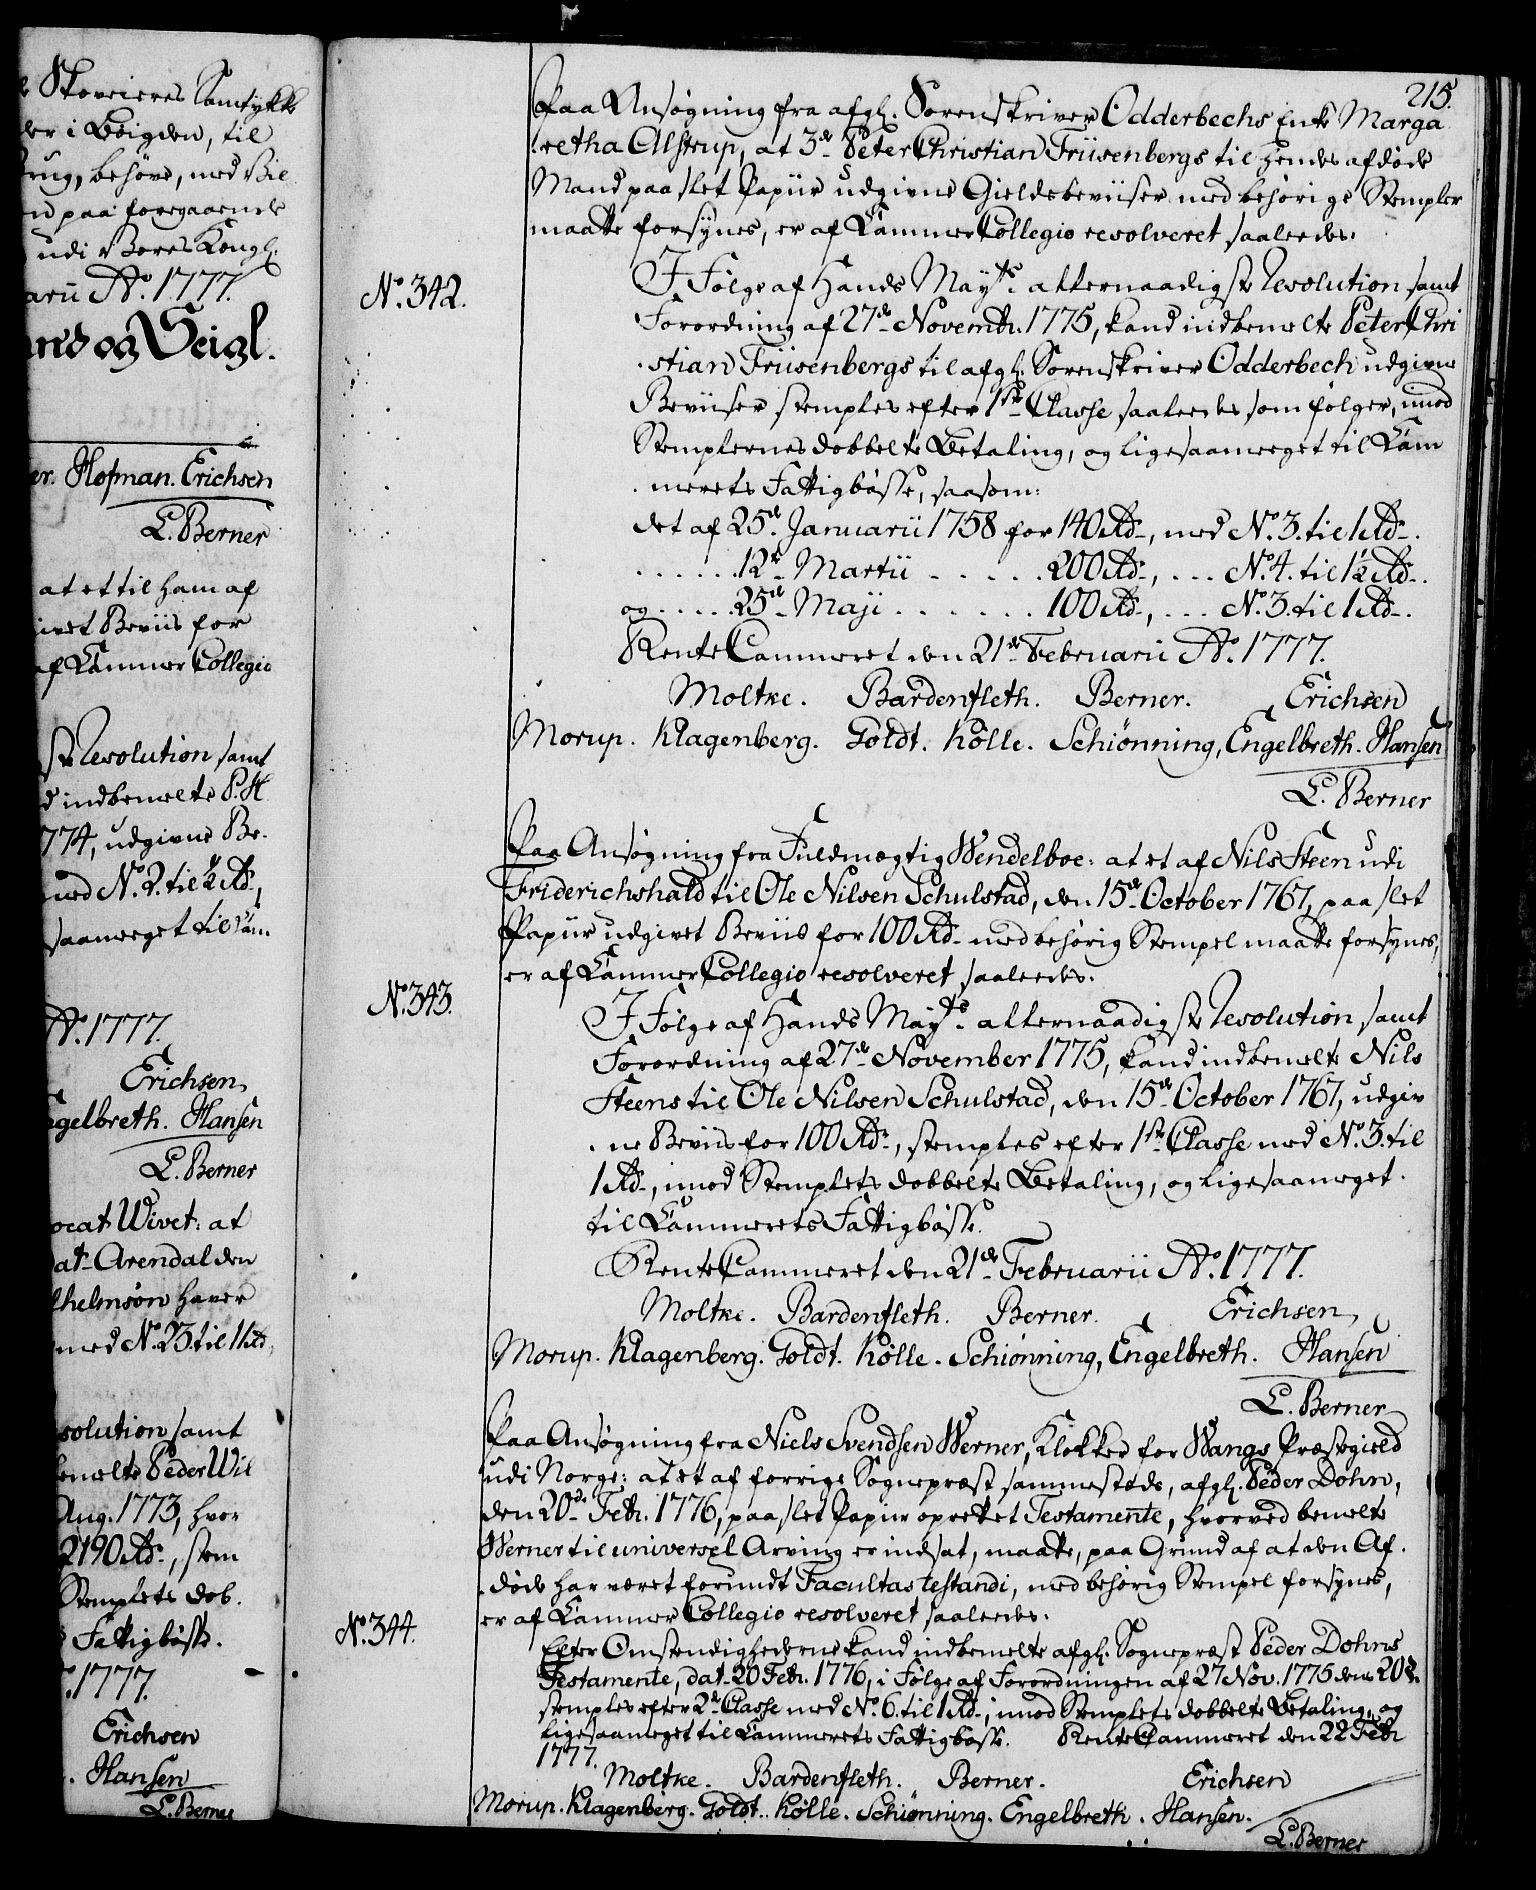 Skoveieres Samtykke
der i Bøigden, til
brug, behøve, med Bil
en paa foregaaende
udi Vores Kongl.
arii Ao. 1777.
and og Seigl.
er. Hofman. Erichsen
L. Berner
at et til ham af
givet Beviis for
af Kammer Collegio
ste Resolution samt
d indbemelte P. H
774, udgivne Be-
med No. 2. til ½ Rd.,
saameeget til Kam
Ao. 1777.
Erichsen,
ngelbreth. Hansen
L. Berner
ocat Wivet: at
dat. Arendal den
lhelmsøn haver
med No. 23. til 11 Rd,
solution samt
bemelte Peder Wil
Aug. 1773, hvor
2190 Rd., som
Stemplets dob.
Fattigbøsse.
1777.
Erichsen
Hansen
L. Berner
215.
Paa Ansøgning fra afgl. Sorenskriver Odderbechs Enke Marga
retha Alstrup, at 3de Peter Christian Friisenbergs til hendes afdøde
Mand paa slet Papiir udgivne Gieldsbeviiser med behørige Stempler
maatte forsynes, er af Kammer Collegio resolveret saaledes.
No. 342.
I Følge af Hands Mayts. allernaadigste Resolution samt
Forordning af 27de Novembr. 1775, kand indbemelte Peter Chri
stian Friisenbergs til afgl. Sorenskriver Odderbech udgivne
Beviiser stemples efter 1ste Classe saaledes som følger, imod
Stemplernes dobbelte Betaling, og ligesaameeget til Kam
merets Fattigbøsse, saasom:
det af 25de Januarii 1758 for 140 Rd., med No. 3. til 1 Rd.
. . . . . . 12te Martii . . . . . 200 Rd., . . . No. 4. til 1½ Rd.
og . . . . 25de Maji . . . . . . . 100 Rd., . . . No. 3. til 1 Rd.
RenteCammeret den 21de Februarii Ao. 1777.
Moltke. Bardenfleth. Berner. Erichsen
Morup. Klagenberg. Goldt. Kølle. Schiønning, Engelbreth. Hansen
L. Berner
Paa Ansøgning fra Fuldmægtig Wendelboe: at et af Nils Steen udi
Friderichshald til Ole Nilsen Schulstad, den 15de October 1767, paa slet
Papiir udgivet Beviis for 100 Rd. med behørig Stempel maatte forsynes,
er af Kammer Collegio resolveret saaledes:
No. 343.
I Følge af Hands Mayts. allernaadigste Resolution samt
Forordning af 27de November 1775, kand indbemelte Nils
Steens til Ole Nilsen Schulstad, den 15de October 1767, udgiv
ne Beviis for 100 Rd., stemples efter 1ste Classe med No. 3. til
1 Rd., imod Stemplets dobbelte Betaling, og ligesaameget
til Kammerets Fattigbøsse.
RenteCammeret den 21de Februarii Ao. 1777.
Moltke. Bardenfleth. Berner. Erichsen,
Morup. Klagenberg. Goldt. Kølle. Schiønning, Engelbreth. Hansen
L. Berner
Paa Ansøgning fra Niels Svendsen Werner, Klokker for Wangs Præstegield
udi Norge: at et af forrige Sognepræst sammesteds, afgl. Peder Dohrn,
den 20de Febr. 1776, paa slet Papiir oprettet Testamente, hvorved bemelte
Werner til universel Arving er indsat, maatte, paa Grund af at den Af-
døde har været forundt Facultas testandi, med behørig Stempel forsynes,
er af Kammer Collegio resolveret saaledes.
No. 344.
Efter Omstændighederne kand indbemelte afgl. Sognepræst Peder Dohrns
Testamente, dat. 20 Febr. 1776, i Følge af Forordningen af 27 Nov. 1775 dens 20 §.
stemples efter 2de Classe med No. 6. til 1 Rd., imod Stemplets dobbelte Betaling, og
ligesaameget til Kammerets Fattigbøsse. RenteCammeret den 22 Febr
1777.
Moltke. Bardenfleth. Berner. Erichsen
Morup. Klagenberg. Goldt. Kølle. Schiønning. Engelbreth. Hansen.
L. Berner